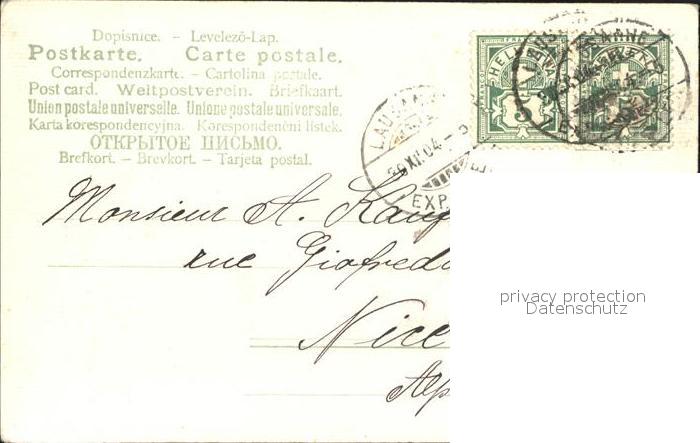 Dopisnice. – Levelező-Lap.
Postkarte. Carte postale.
Correspondenzkarte. – Cartolina postale.
Post card. Weltpostverein. Briefkaart.
Union postale universelle. Unione postale universale.
Karta korespondencyjna. Korespondenční lístek.
ОТКРЫТОЕ ПИСЬМО.
Brefkort. – Brevkort. – Tarjeta postal.
HELVETIA
5
LAUSANNE
EXP
Monsieur A.
rue
Nice
privacy protection
Datenschutz